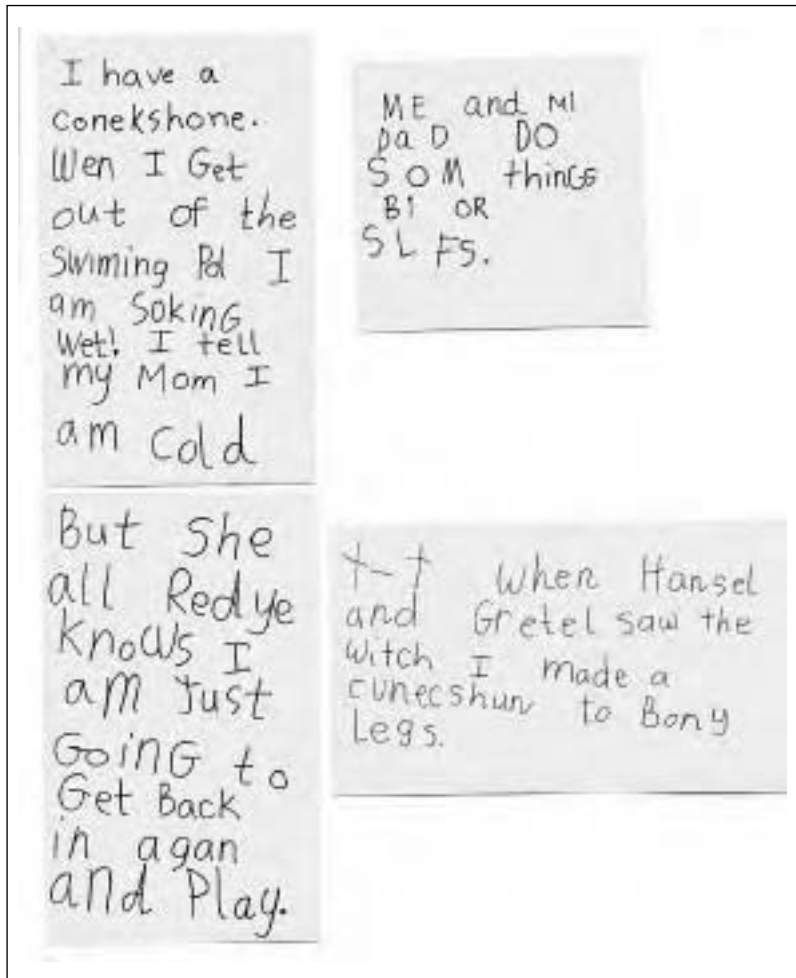 I have a
conekshone.
Wen I Get
out of the
Swiming Pol I
am Soking
Wet! I tell
my Mom I
am Cold
But She
all Redye
knows I
am Just
GoinG to
Get Back
in agan
and Play.
ME and MI
DaD DO
SOM thinGs
BI OR
SLFS.
T-T When Hansel
and Gretel saw the
witch I made a
cunecshun to Bony
Legs.